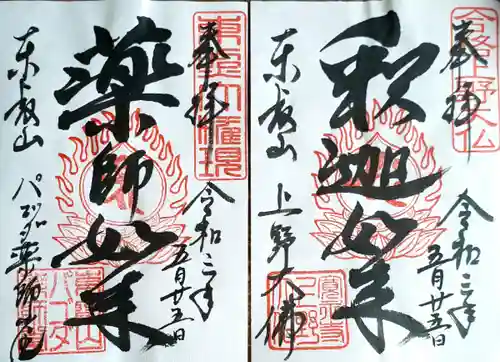 奉拝
釈迦如来
令和三年
五月廿五日
東叡山
上野大佛
奉拝
薬師如来
令和三年
五月廿五日
東叡山
パゴダ薬師堂